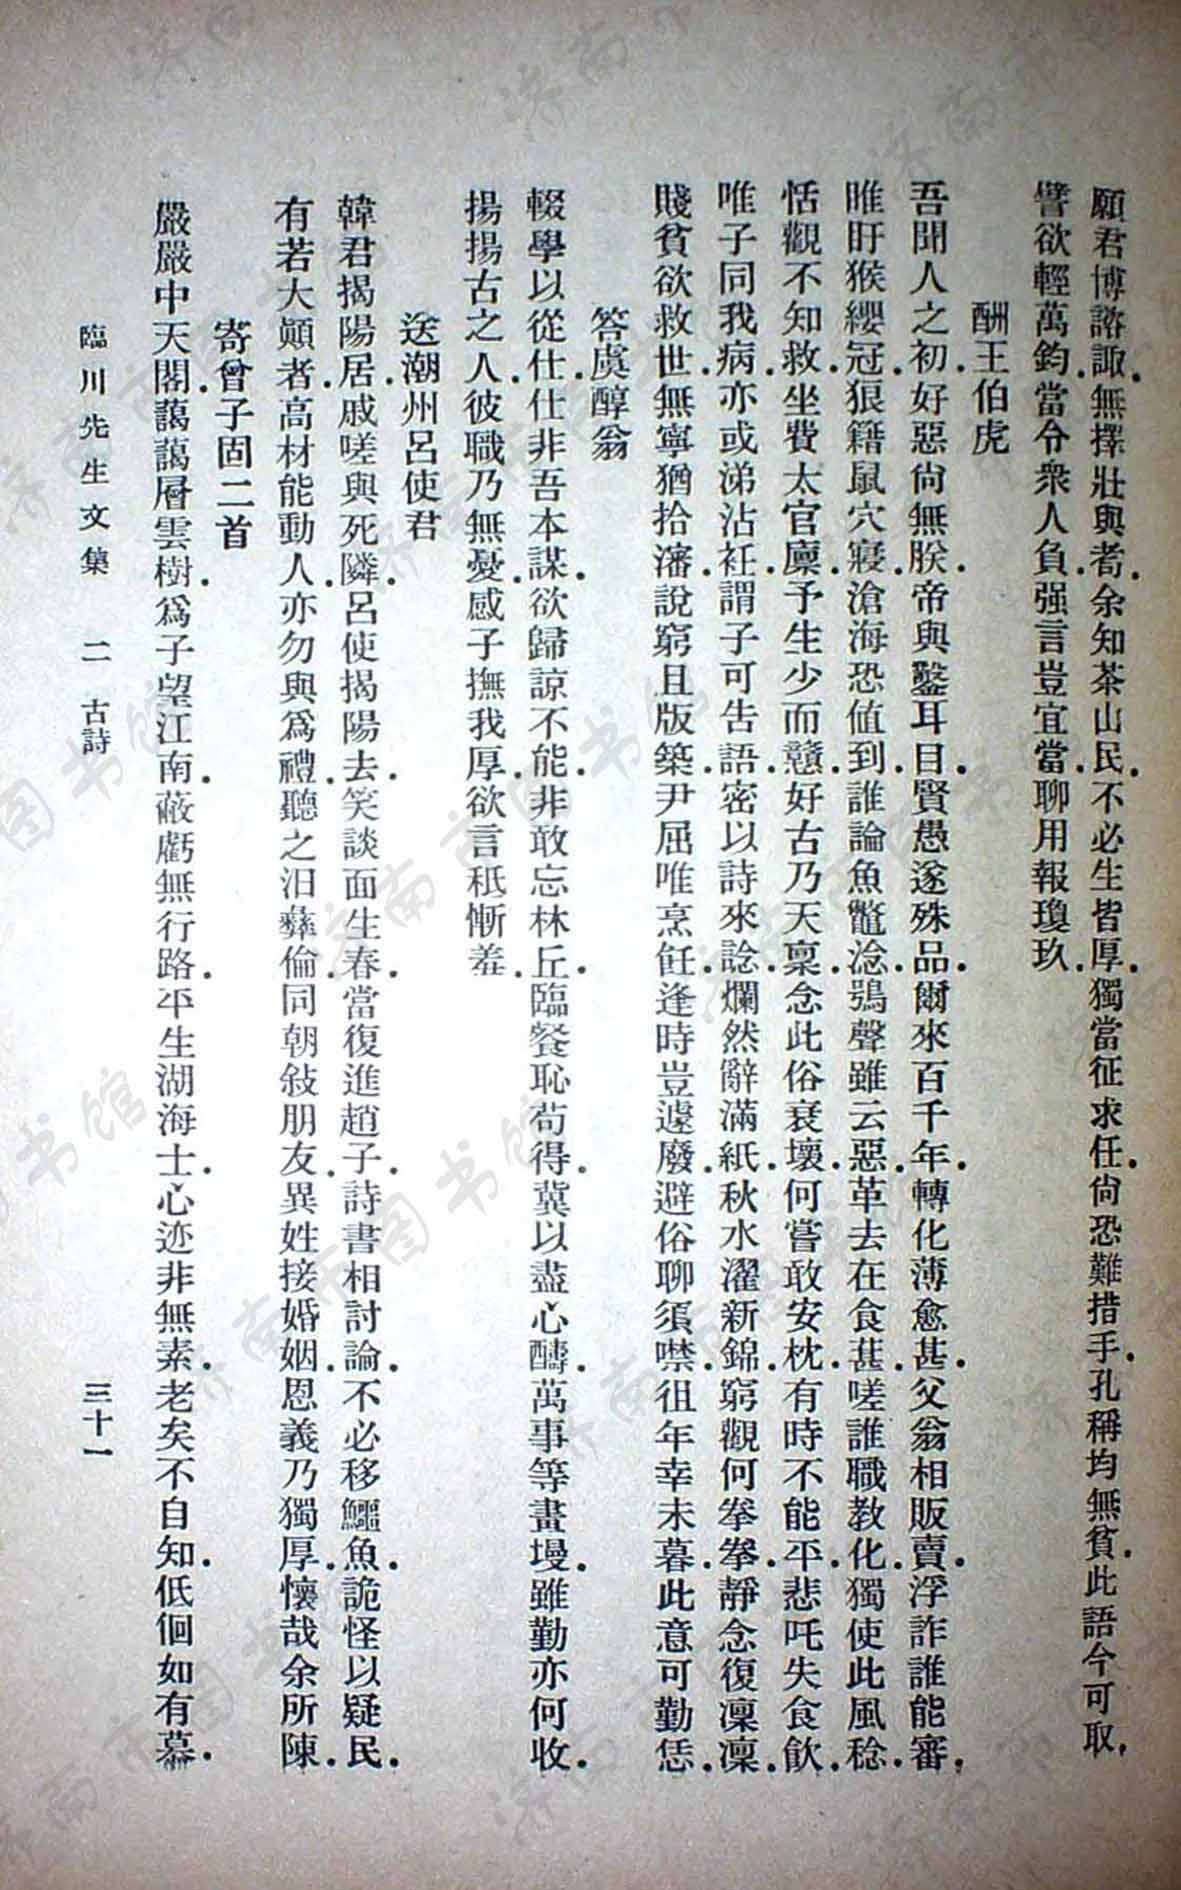 願君博諮諏．無擇壯與耇．余知茶山民．不必生皆厚．獨當征求任．尙恐難措手．孔稱均無貧．此語今可取．
譬欲輕萬鈞．當令衆人負．强言豈宜當．聊用報瓊玖．
酬王伯虎
吾聞人之初．好惡尙無朕．帝與鑿耳目．賢愚遂殊品．爾來百千年．轉化薄愈甚．父翁相販賣．浮詐誰能審．
睢盱猴纓冠．狼籍鼠穴寢．滄海恐値到．誰論魚鼈淰．鴞聲雖云惡．革去在食葚．嗟誰職敎化．獨使此風稔．
恬觀不知救．坐費太官廩．予生少而戇．好古乃天稟．念此俗衰壞．何嘗敢安枕．有時不能平．悲吒失食飮．
唯子同我病．亦或涕沾衽．謂子可吿語．密以詩來諗．爛然辭滿紙．秋水濯新錦．窮觀何拳拳．靜念復凜凜．
賤貧欲救世．無寧猶拾瀋．說窮且版築．尹屈唯烹飪．逢時豈遽廢．避俗聊須噤．徂年幸未暮．此意可勤恁．
答虞醇翁
輟學以從仕．仕非吾本謀．欲歸諒不能．非敢忘林丘．臨餐恥苟得．冀以盡心醻．萬事等畫墁．雖勤亦何收．
揚揚古之人．彼職乃無憂．感子撫我厚．欲言秖慚羞．
送潮州呂使君
韓君揭陽居．戚嗟與死隣．呂使揭陽去．笑談面生春．當復進趙子．詩書相討論．不必移鱷魚．詭怪以疑民．
有若大顚者．高材能動人．亦勿與爲禮．聽之汨彝倫．同朝敍朋友．異姓接婚姻．恩義乃獨厚．懷哉余所陳．
寄曾子固二首
嚴嚴中天閣．藹藹層雲樹．爲子望江南．蔽虧無行路．平生湖海士．心迹非無素．老矣不自知．低佪如有慕．
臨川先生文集　二　古詩　三十一